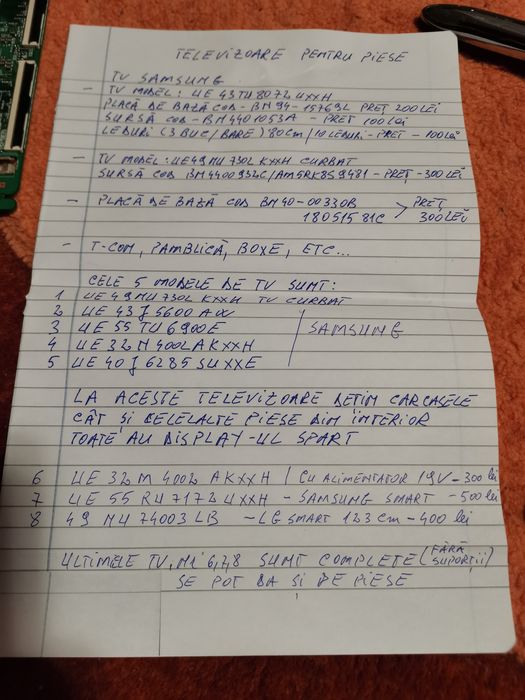 TELEVIZOARE PENTRU PIESE
TV SAMSUNG
- TV MODEL: UE 43 TU 8072 UXXH
PLACĂ DE BAZĂ COD - BN 94 - 15769L PREȚ 200 LEI
SURSĂ COD - BN4401053A - PREȚ 100 LEI
LEDURI (3 BUC/BARE) 80 cm/10 LEDURI - PREȚ - 100 LEI
- TV MODEL: UE49MU 730L KXXH CURBAT
SURSĂ COD BN4400932C/AMSRK8S9481 - PREȚ - 300 LEI
- PLACĂ DE BAZĂ COD BN40-00330B > PREȚ
18051581C 300 LEI
- T-CON, PAMBLICĂ, BOXE, ETC...
CELE 5 MODELE DE TV SUNT:
1 UE 49 MU 730L KXXH TV CURBAT
2 UE 43 J 5600 AW
3 UE 55 TU 6900E SAMSUNG
4 UE 32 N 400L AKXXH
5 UE 40 J 6285 SUXXE
LA ACESTE TELEVIZOARE DETIN CARCASELE
CÂT ȘI CELELALTE PIESE DIN INTERIOR
TOATE AU DISPLAY-UL SPART
6 UE 32 M 4002 AKXXH / CU ALIMENTATOR 19V - 300 lei
7 UE 55 RU 7172 UXXH - SAMSUNG SMART - 500 lei
8 49 NU 74003 LB - LG SMART 123 cm - 400 lei
ULTIMELE TV, N1 6,7,8 SUNT COMPLETE (FĂRĂ SUPORȚII)
SE POT DA ȘI PE PIESE